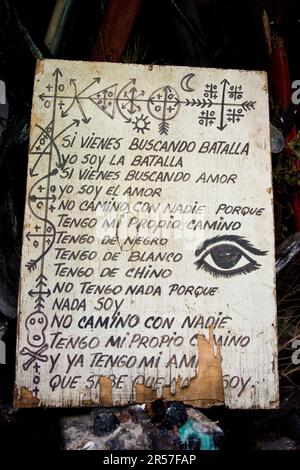 SI VIENES BUSCANDO BATALLA
YO SOY LA BATALLA
SI VIENES BUSCANDO AMOR
YO SOY EL AMOR
NO CAMINO CON NADIE PORQUE
TENGO MI PROPIO CAMINO
TENGO DE NEGRO
TENGO DE BLANCO
TENGO DE CHINO
NO TENGO NADA PORQUE
NADA SOY
NO CAMINO CON NADIE
TENGO MI PROPIO CAMINO
Y YA TENGO MI
QUE SABE QUE SOY...
alamy